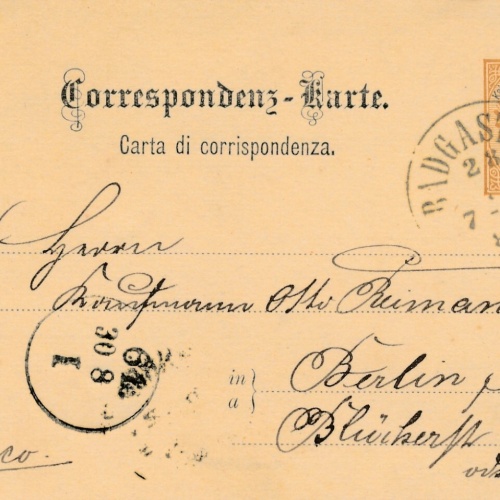 Correspondenz-Karte.
Carta di corrispondenza.
BADGAST
2
7
Herrn
Kaufmann Otto Reiman
in
a
Berlin
Blücherst
30 8
I
co.